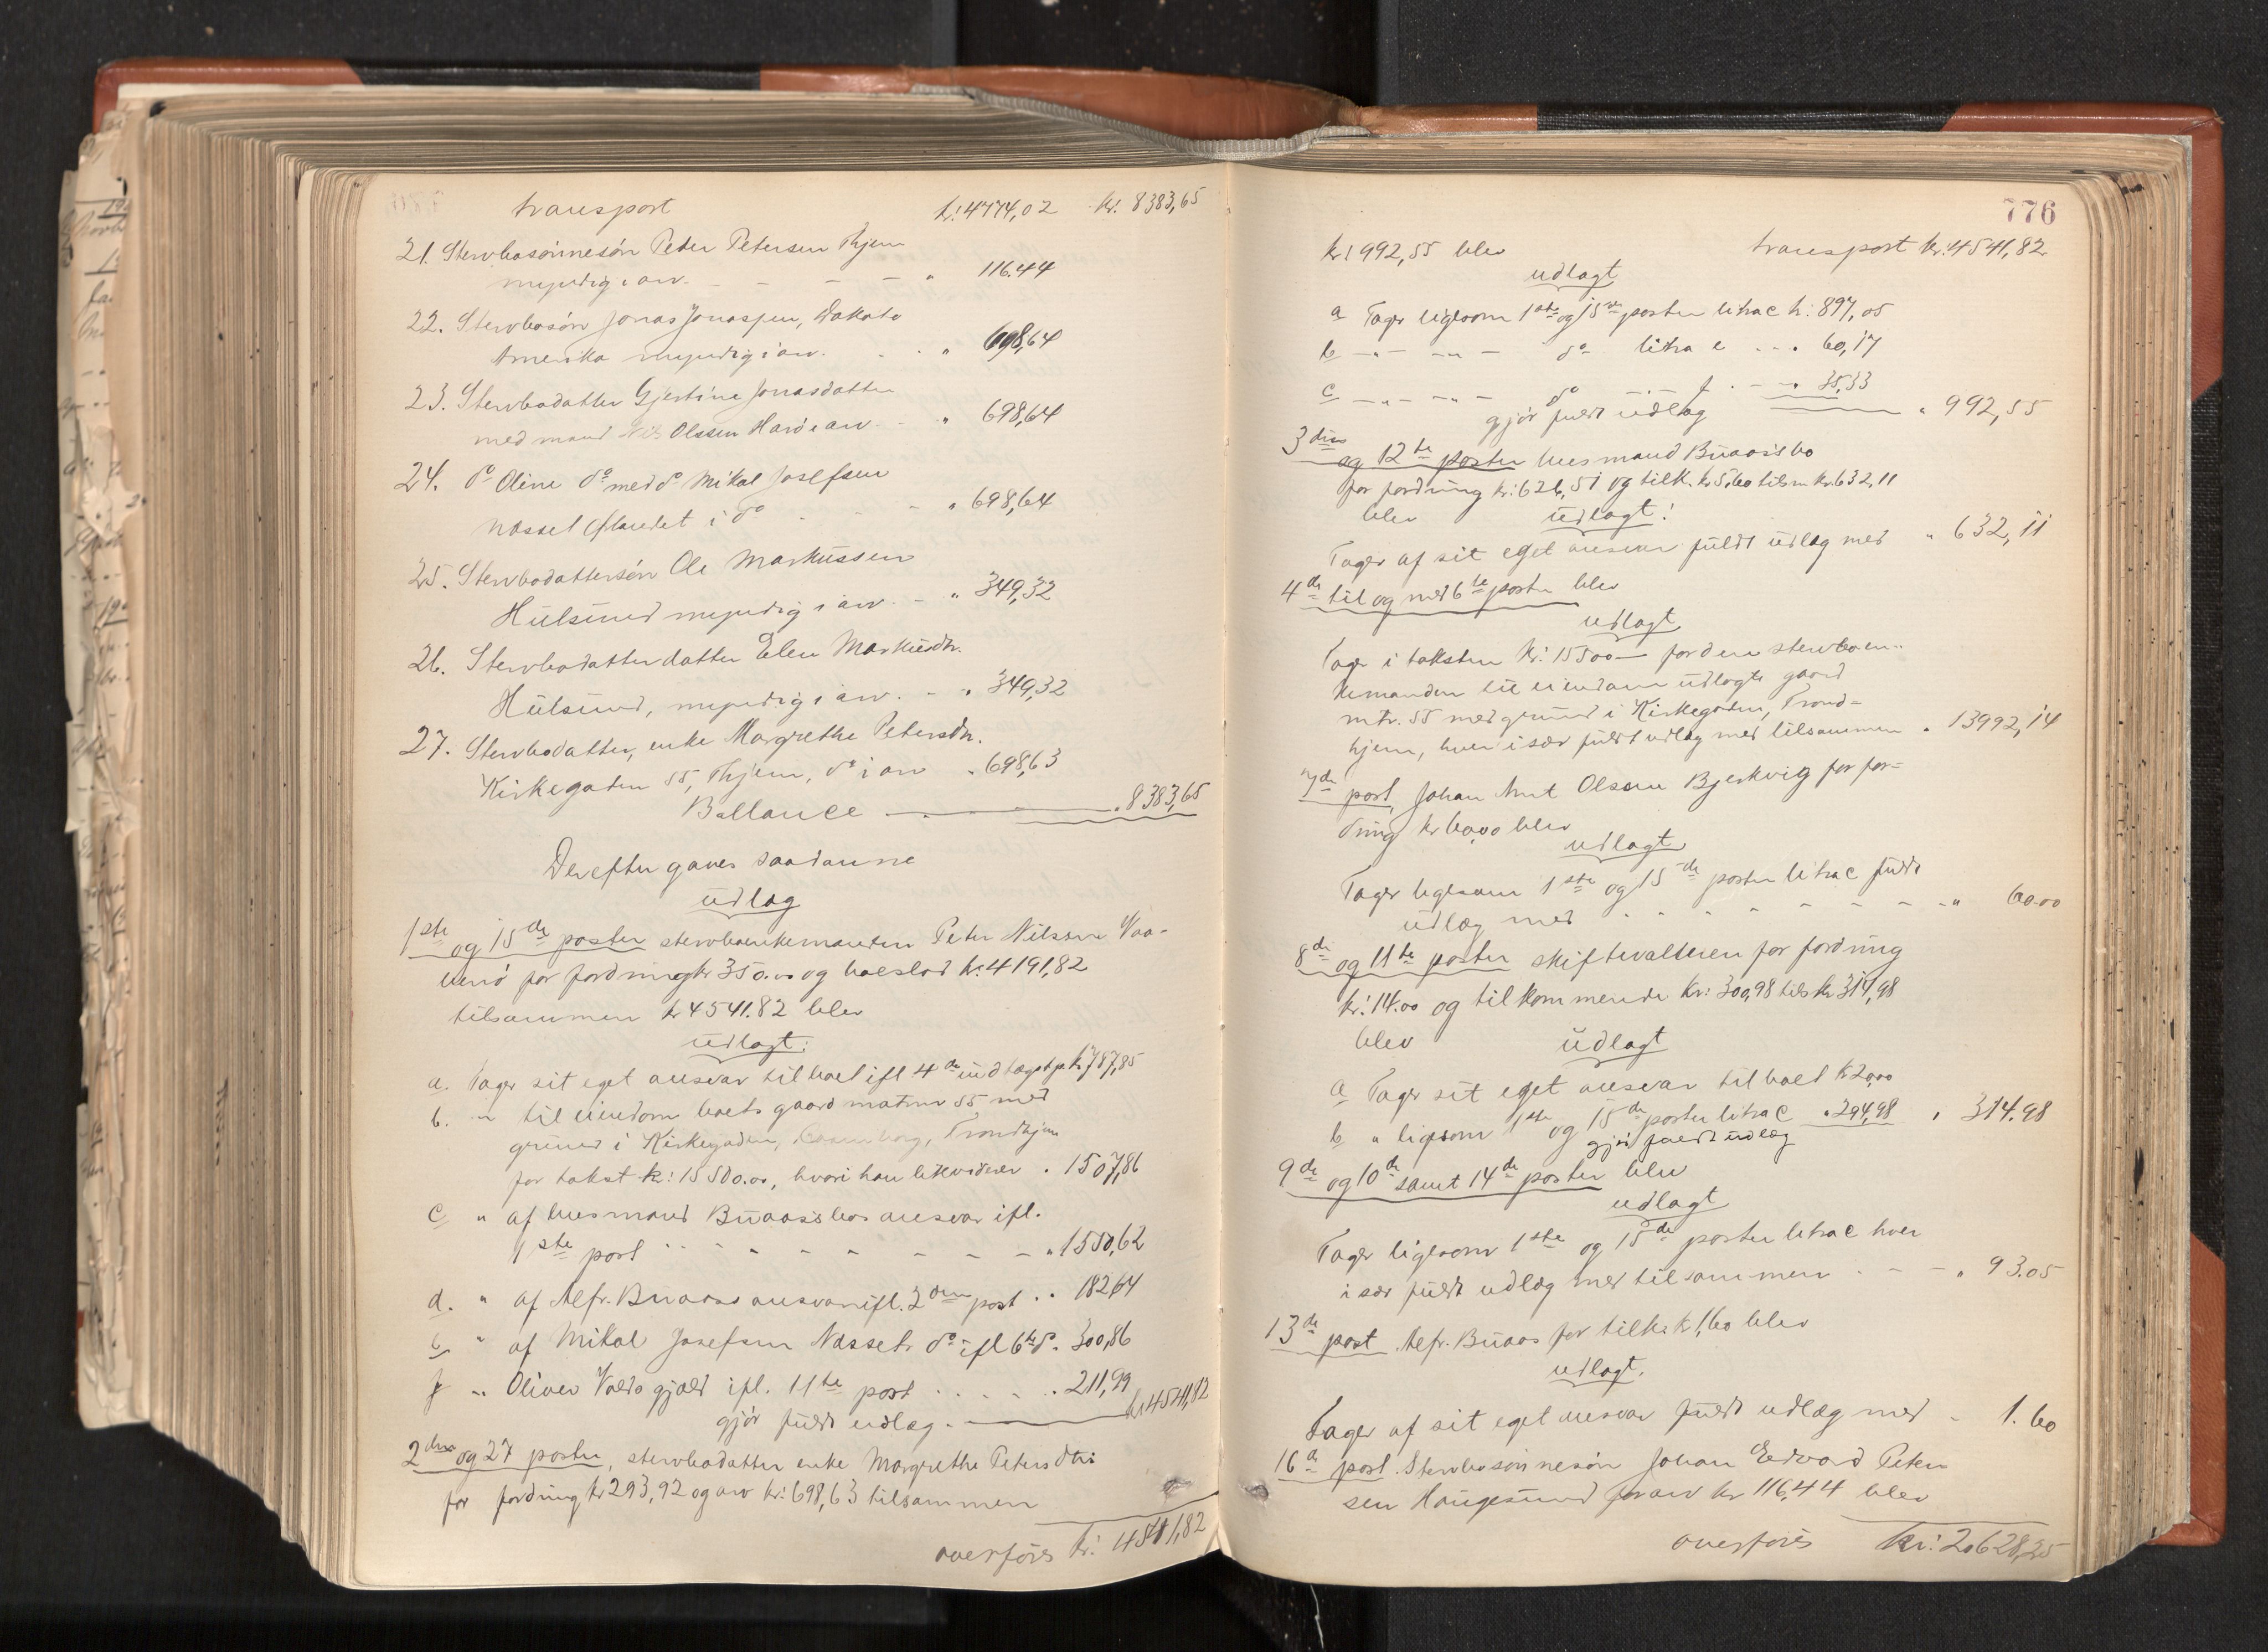 transport kr: 4774,02 kr. 8383,65
21. Stervbosønnesøn Peter Petersen Thjem
myndig i arv. - - - - " 116.44
22. Stervbosøn Jonas Jonassen, Dakota
Amerika myndig i arv. . . " 698,64
23. Stervbodatter Gjertine Jonasdatter
med mand Nils Olssen Harø i arv. - " 698,64
24. do Oline do med do Mikal Josefsen
Næsset i do - - - " 698,64
25. Stervbodattersøn Ole Markussen
Hulsund myndig i arv. - " 349,32
26. Stervbodatterdatter Elen Markusdtr.
Hulsund, myndig i arv. - " 349,32
27. Stervbodatter, enke Margrethe Petersdtr.
Kirkegaten 55, Thjem, do i arv " 698,63
Ballance " 8383,65
Derefter gaves saadanne
udlæg
1ste og 15de poster stervboenkemanden Peter Nilssen
for fordring kr 350.00 og boeslod kr. 4191,82
tilsammen kr 4541.82 blev
udlagt:
a. Tager sit eget ansvar til boet ifl 4de indtægtsp. kr 787,85
b. " til eiendom boets gaard matrnr 55 med
grund i Kirkegaden, Trondhjem
for takst kr: 15500.00, hvori han likviderer . 1507,86
c " af husmand Buaas's bos ansvar ifl.
1ste post " - - - - - - " 1550,62
d. " af Alfr. Buaas's ansvar ifl. 2den post . . 182,64
e " af Mikal Josefsen Næssets do ifl 6te do. 300,86
f " Oliver Volds gjæld ifl. 11te post . . . . 211,99
gjør fuldt udlæg. kr. 4541,82
2den og 27 poster, stervbodatter enke Margrethe Petersdtr:
for fordring kr 293,92 og arv kr: 698,63 tilsammen
overføres kr: 4541,82
776
kr 992,55 blev transport kr. 4541,82
udlagt
a Tager ligesom 1ste og 15de poster litra c kr: 897,05
b - " - - " - do litra e . . . 60,17
c - " - - " - do - " - f . - . 35,33
gjør fuldt udlæg " 992,55
3die og 12te poster husmand Buaas's bo
for fordring kr: 626,51 og tilk. kr 5,60 tilsm kr. 632,11
blev udlagt:
Tager af sit eget ansvar fuldt udlæg med " 632,11
4de til og med 6te poster blev
udlagt
Tager i taksten kr: 15500 — for den stervboen-
kemanden til eiendom udlagte gaard
mtr. 55 med grund i Kirkegaden, Trond-
hjem, hver især fuldt udlæg med tilsammen " 13992,14
7de post, Johan Arnt Olssen Bjerkvig for for-
dring kr 60,00 blev
udlagt
Tager ligesom 1ste og 15de poster litra c fuldt
udlæg med - - - - - - - " 60.00
8de og 11te poster skifteforvalteren for fordring
kr: 14.00 og tilkommende kr: 300,98 tils kr 314,98
blev udlagt
a Tager sit eget ansvar til boet kr 20,00
b " ligesom 1ste og 15de poster litra c " 294,98 " 314.98
gjør fuldt udlæg
9de og 10de samt 14de poster blev
udlagt
Tager ligesom 1ste og 15de poster litra c hver
især fuldt udlæg med tilsammen - - - " 93.05
13de post Alfr. Buaas for tilk. kr 1,60 blev
udlagt.
Tager af sit eget ansvar fuldt udlæg med - 1.60
16de post. Stervbosønnesøn Johan Edvard Peter-
sen Haugesund for arv kr 116,44 blev
overføres kr: 20628,25